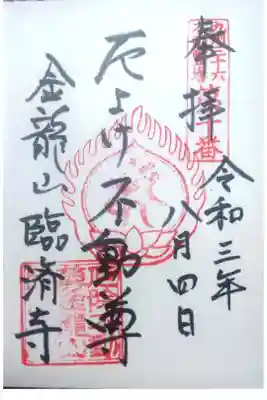 奉拝
令和三年
八月四日
厄よけ不動尊
金龍山臨済寺